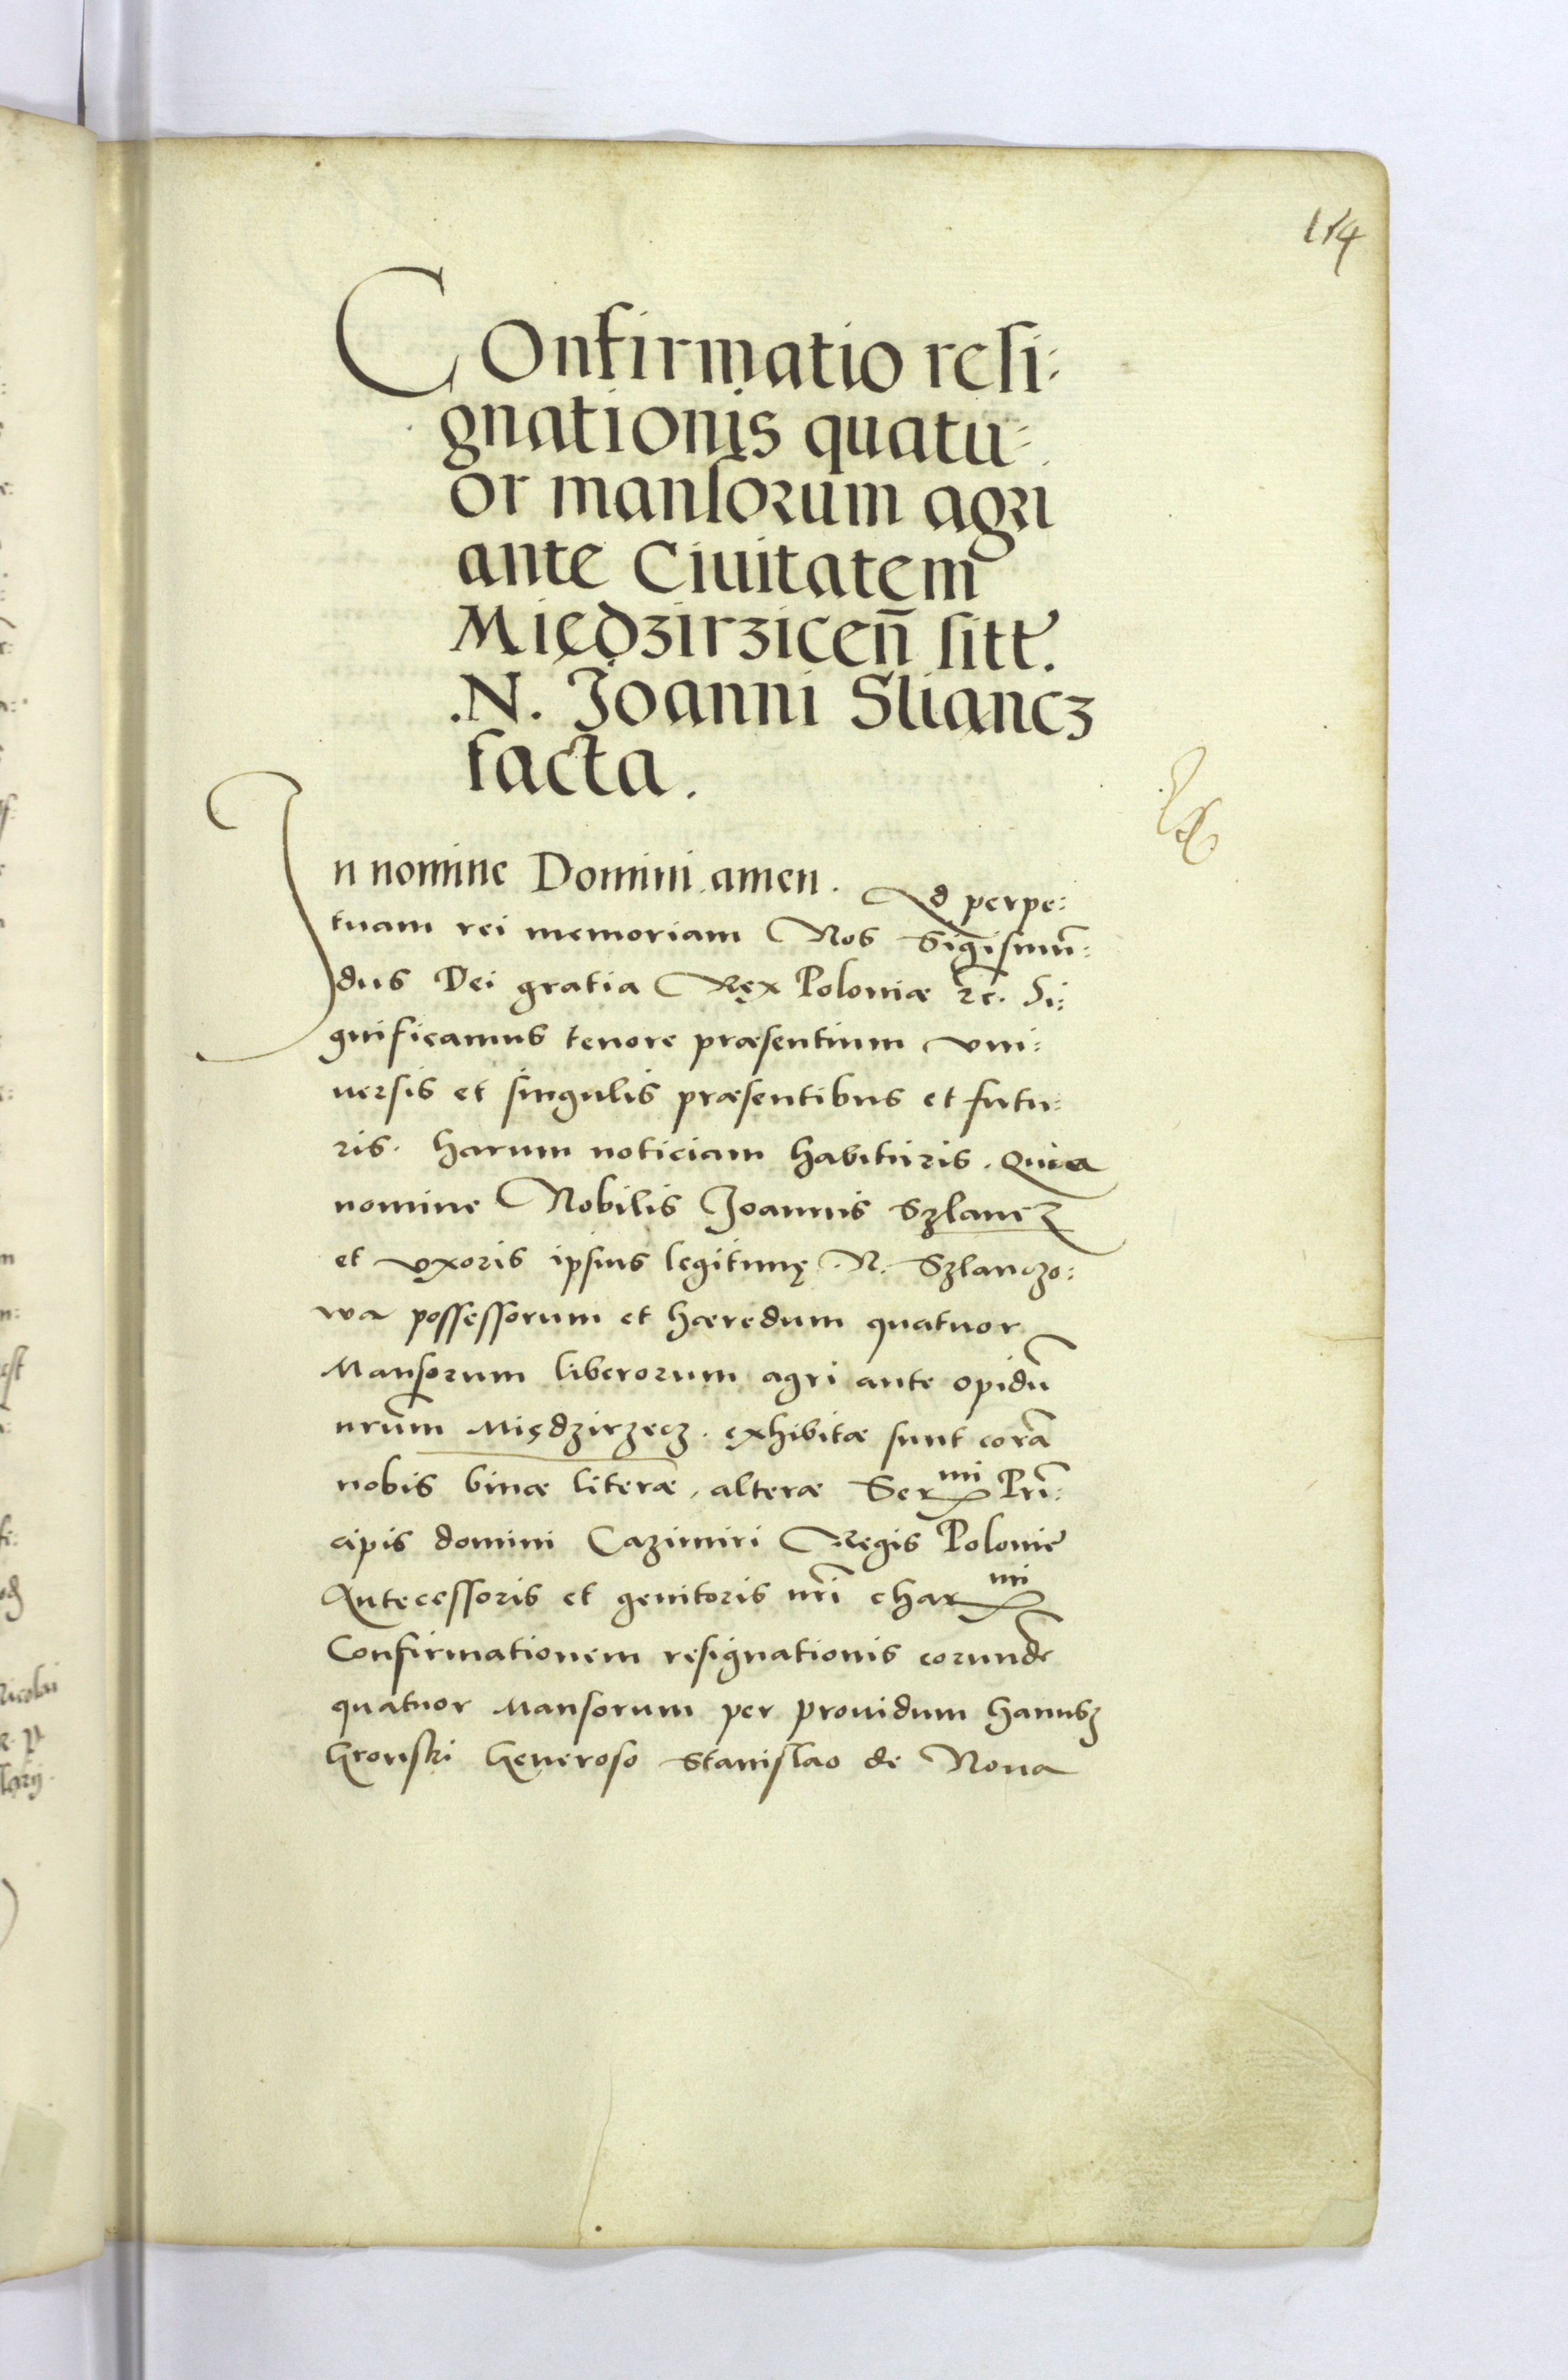 114
COnfirmatio resi:
gnationis quatu:
or mansorum agri
ante Ciuitatem
Międzirzicen̄ sitt.
.N. Joanni Sliancz
facta.
In nomine Domini amen. Ad perpe:
tuam rei memoriam Nos Sigismūn:
dus Dei gratia Rex Poloniæ rc. Si:
gnificamus tenore præsentium vni:
uersis et singulis præsentibus et futu:
ris. harum noticiam habituris. Quia
nomine Nobilis Joannis Szlancz
et vxoris ipsius legitimę .N. Szlanczo:
wa possessorum et hæredum quatuor
Mansorum liberorum agri ante opidū
nrūm Międzirzecz. exhibitæ sunt corā
nobis binæ literæ, alteræ Sermi Prī:
cipis domini Cazimiri Regis Polonie
Antecessoris et genitoris nrī charmi
Confirmationem resignationis eorundē
quatuor Mansorum per prouidum Hanusz
Gronski Generoso Stanislao de Noua